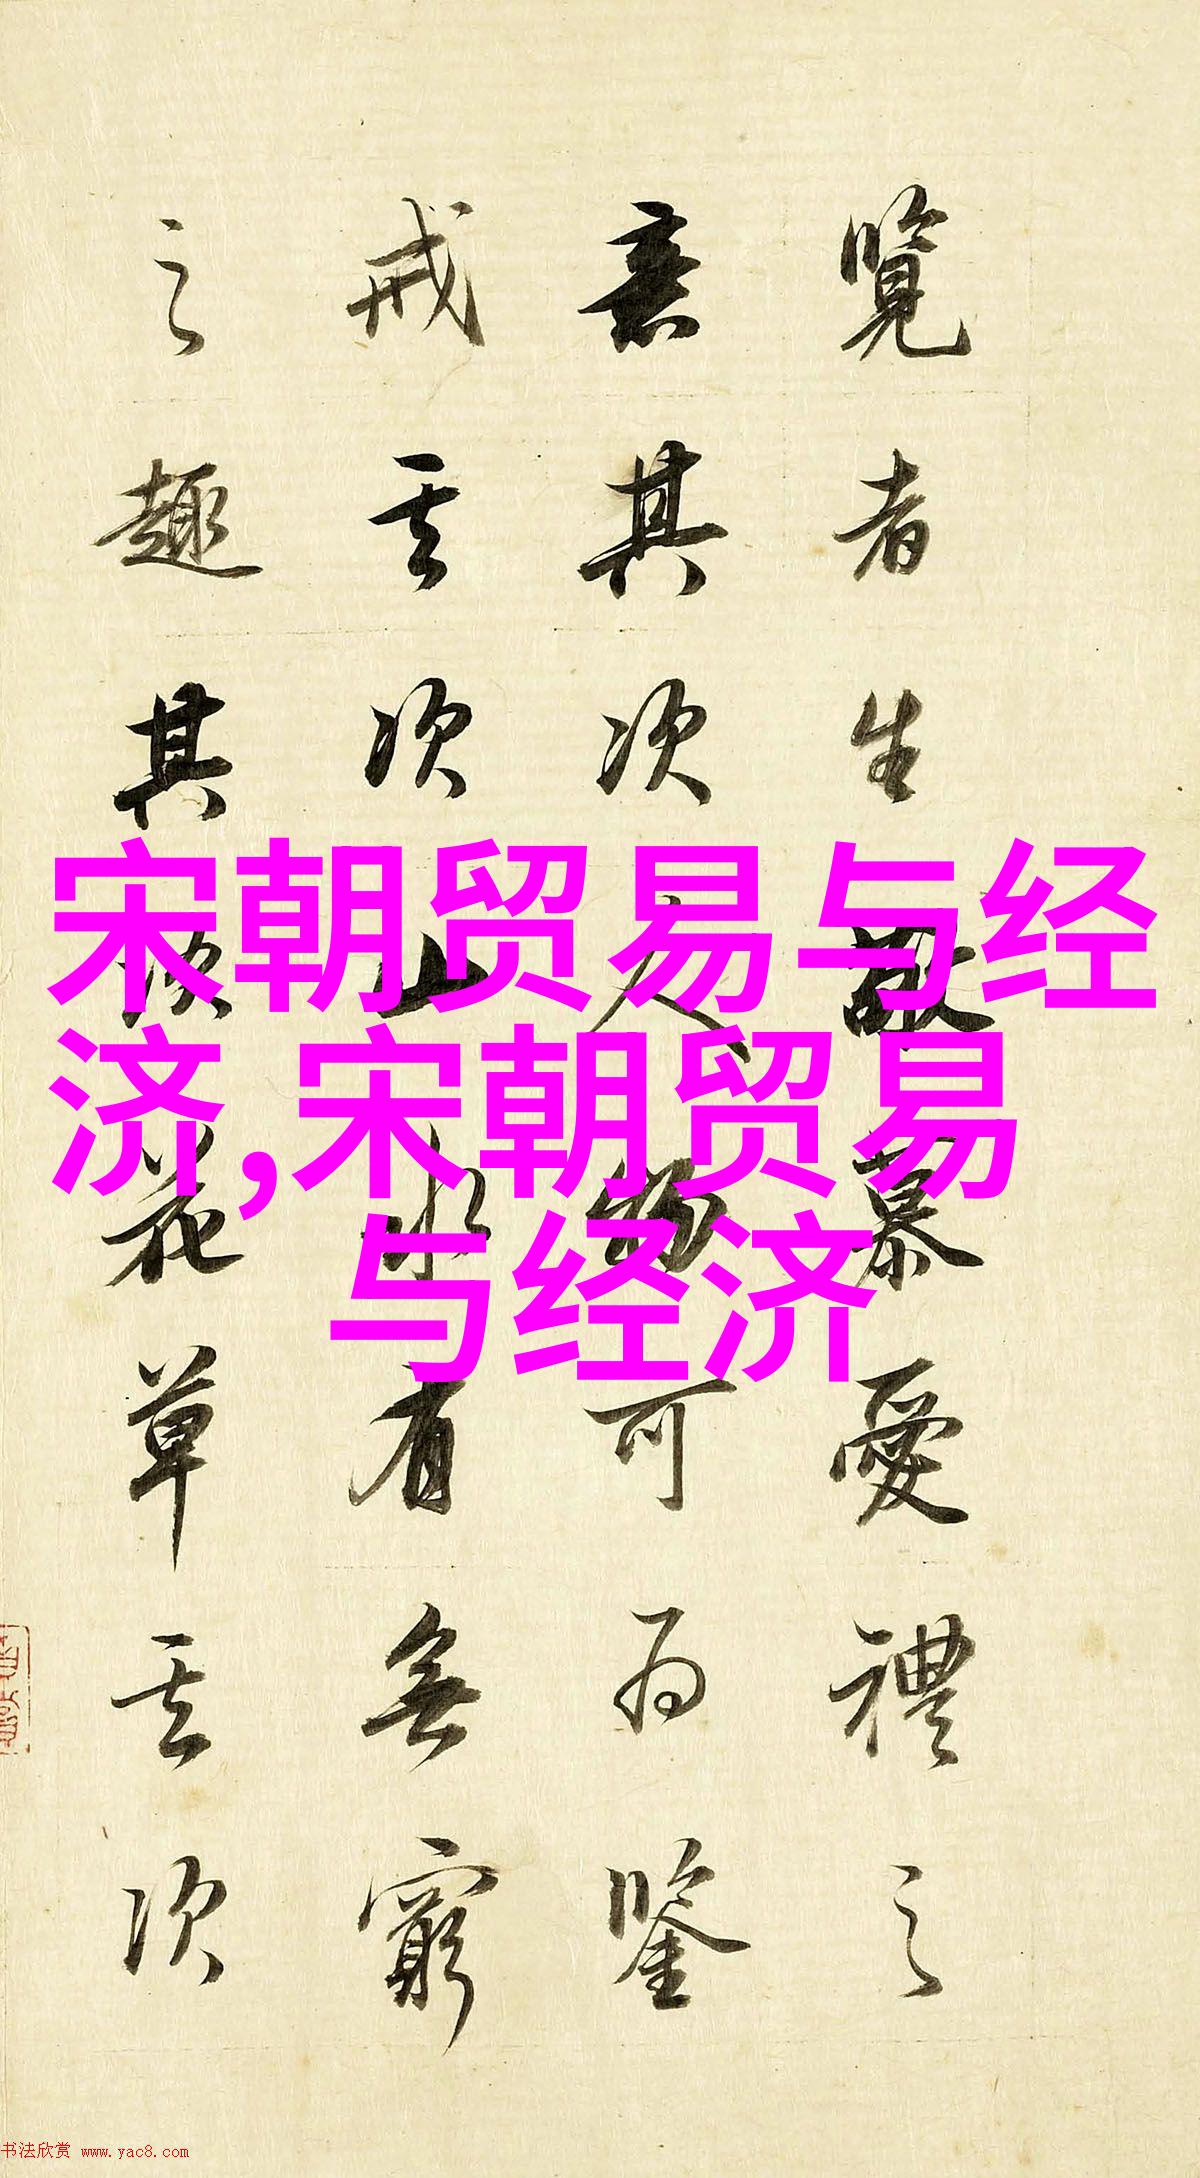 覽者生敬慕愛禮之
意其次人物可為鑒
戒其次山水有無窮
之趣其次花草其次
宋朝贸易与经
济,宋朝贸易
与经济
书法欣赏 www.yac8.com